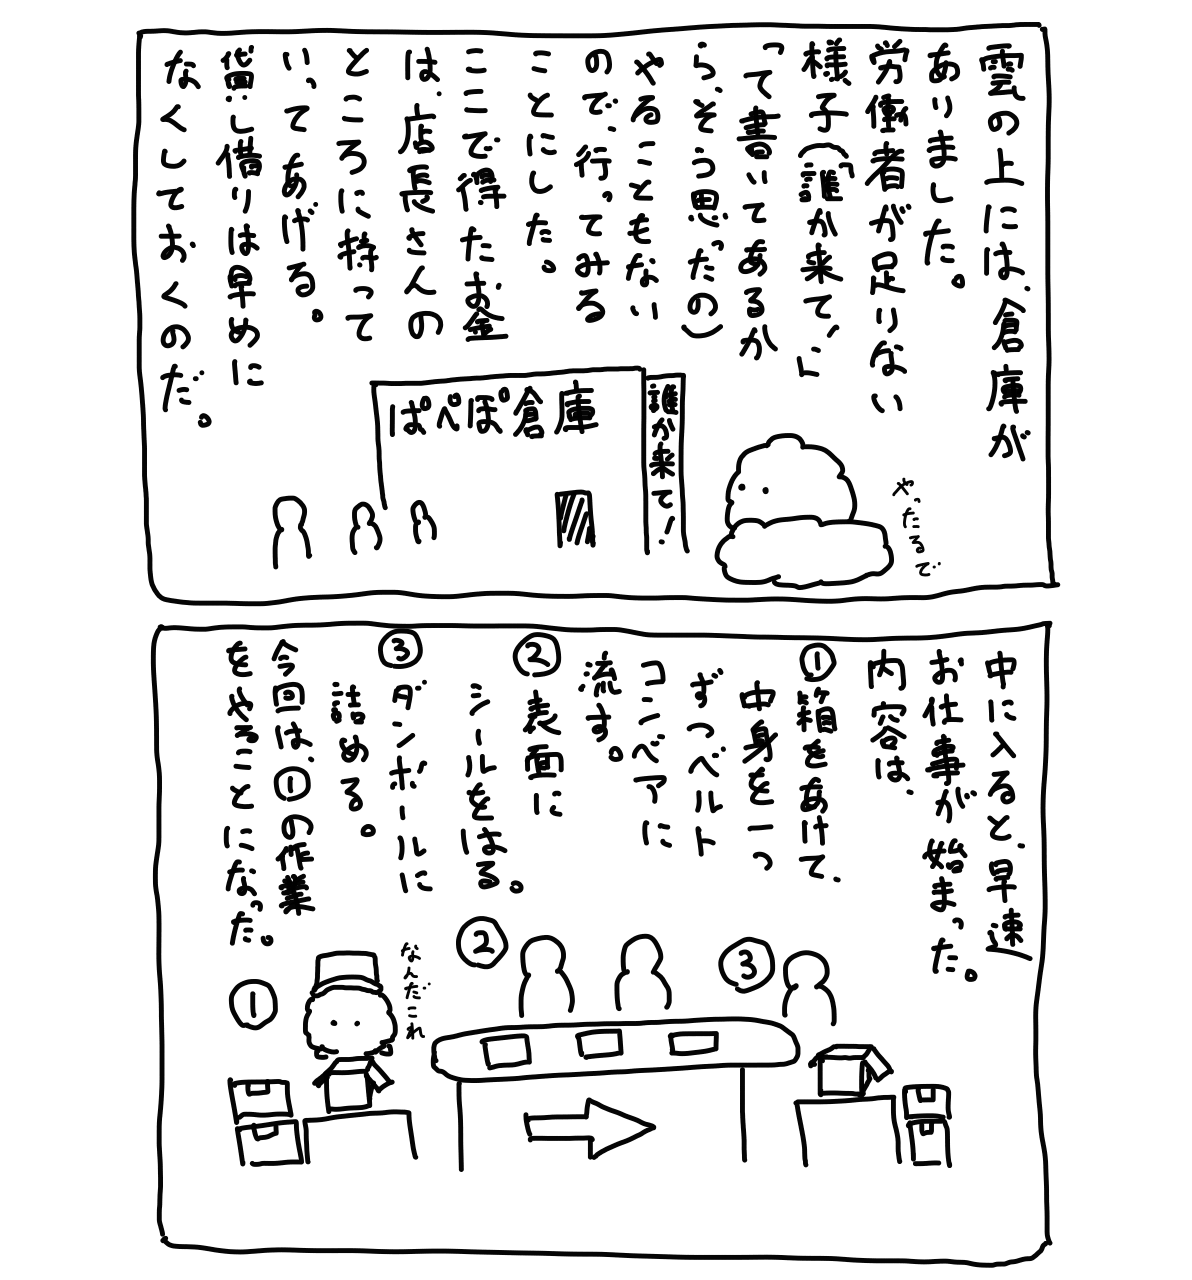 雲の上には、倉庫が
ありました。
労働者が足りない
様子(「誰か来て！」
って書いてあるか
ら、そう思ったの)
やることもない
ので、行ってみる
ことにした。
ここで得たお金
は、店長さんの
ところに持って
いってあげる。
貸し借りは早めに
なくしておくのだ。
誰か来て！
ぱぺぽ倉庫
やったるで
中に入ると、早速
お仕事が始まった。
内容は、
①箱をあけて、
中身を一つ
ずつベルト
コンベアに
流す。
②表面に
シールをはる。
③ダンボールに
詰める。
今回は、①の作業
をやることになった。
③
②
なんだこれ
①